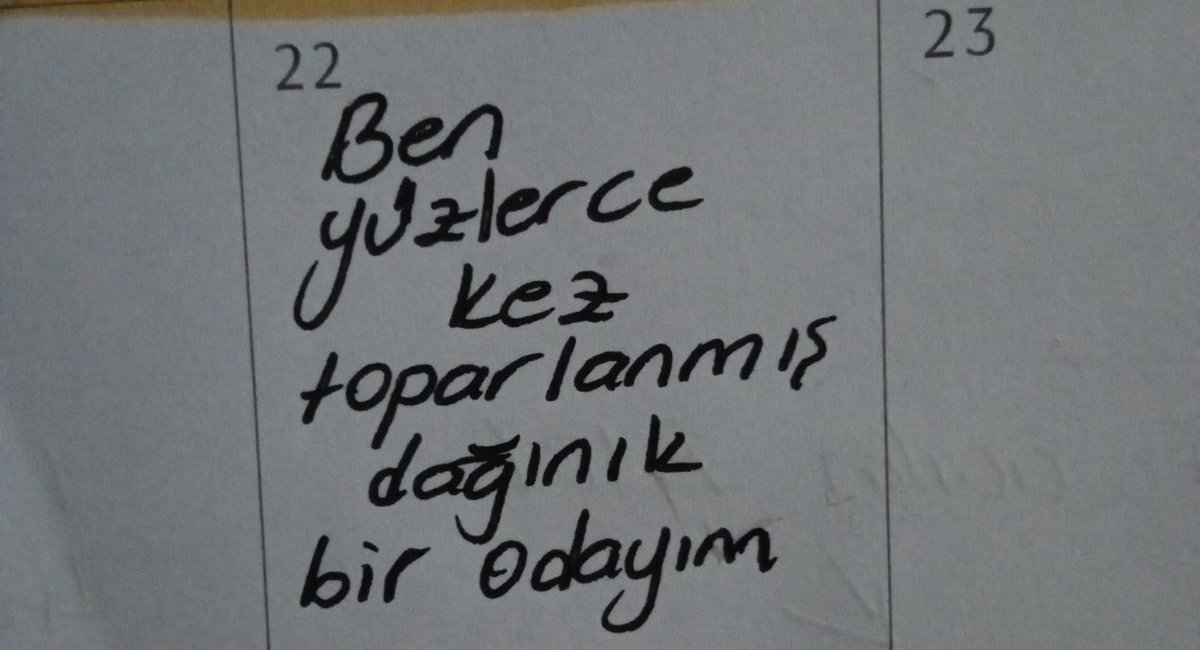 22
23
Ben
yüzlerce
kez
toparlanmış
dağınık
bir odayım